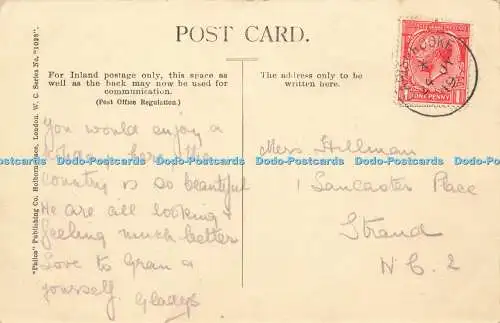 POST CARD.
For Inland postage only, this space as
well as the back may now be used for
communication.
(Post Office Regulation.)
The address only to be
written here.
"Philco" Publishing Co. Holborn Place, London. W. C. Series No. "1028".
ONE PENNY
You would enjoy a
holiday here, the
country is so beautiful
We are all looking &
feeling much better
Love to Gran &
yourself. Gladys
Mrs Hillman
1 Lancaster Place
Strand
W.C. 2
Dodo-Postcards Dodo-Postcards Dodo-Postcards Dodo-Postcards